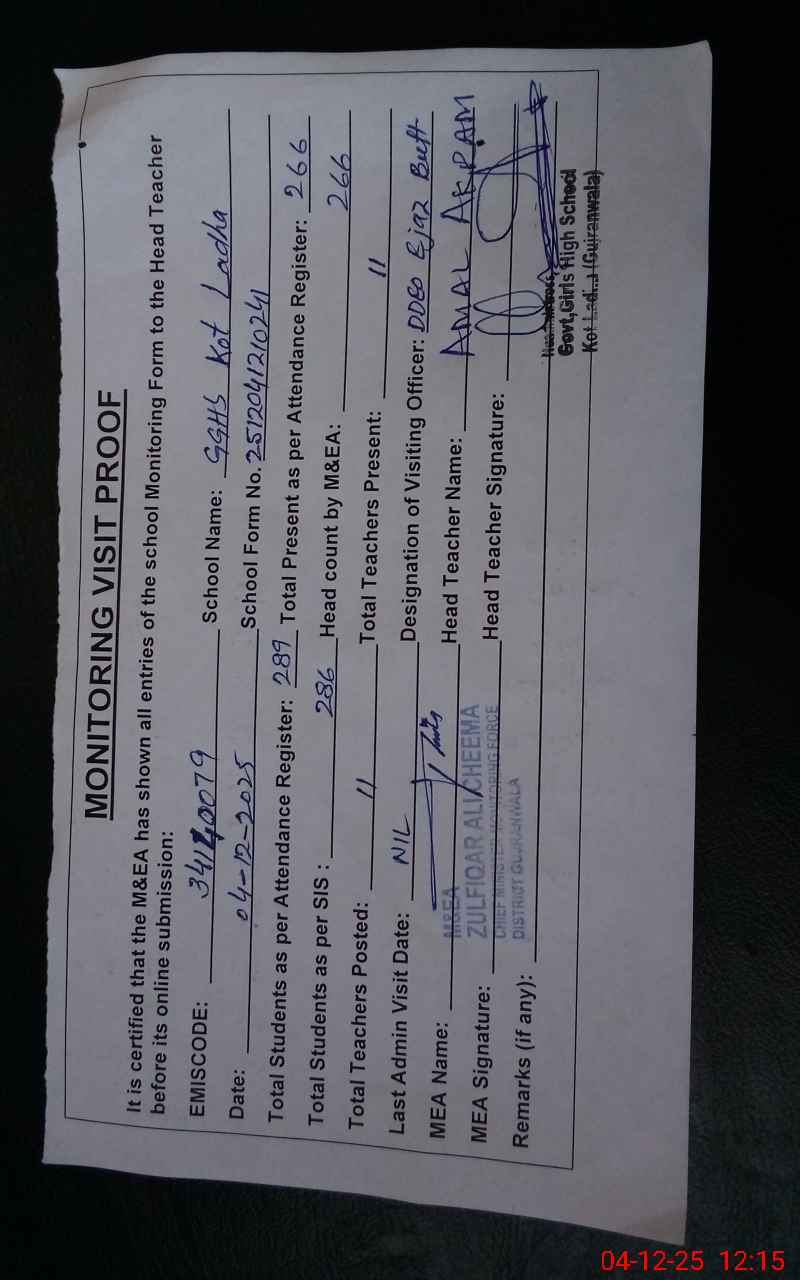 MONITORING VISIT PROOF
It is certified that the M&EA has shown all entries of the school Monitoring Form to the Head Teacher
before its online submission:
EMISCODE: 34120079 School Name: GGHS Kot Ladha
Date: 04-12-2025 School Form No. 2512041210241
Total Students as per Attendance Register: 289 Total Present as per Attendance Register: 266
Total Students as per SIS : 286 Head count by M&EA: 266
Total Teachers Posted: 11 Total Teachers Present: 11
Last Admin Visit Date: NIL Designation of Visiting Officer: DDEO Ejaz Butt
MEA Name: Head Teacher Name: AMAL AKRAM
M&EA
ZULFIQAR ALI CHEEMA
CHIEF MINISTER MONITORING FORCE
DISTRICT GUJRANWALA
MEA Signature: Head Teacher Signature:
Remarks (if any):
Govt,Girls High School
Kot (Gujranwala)
04-12-25 12:15